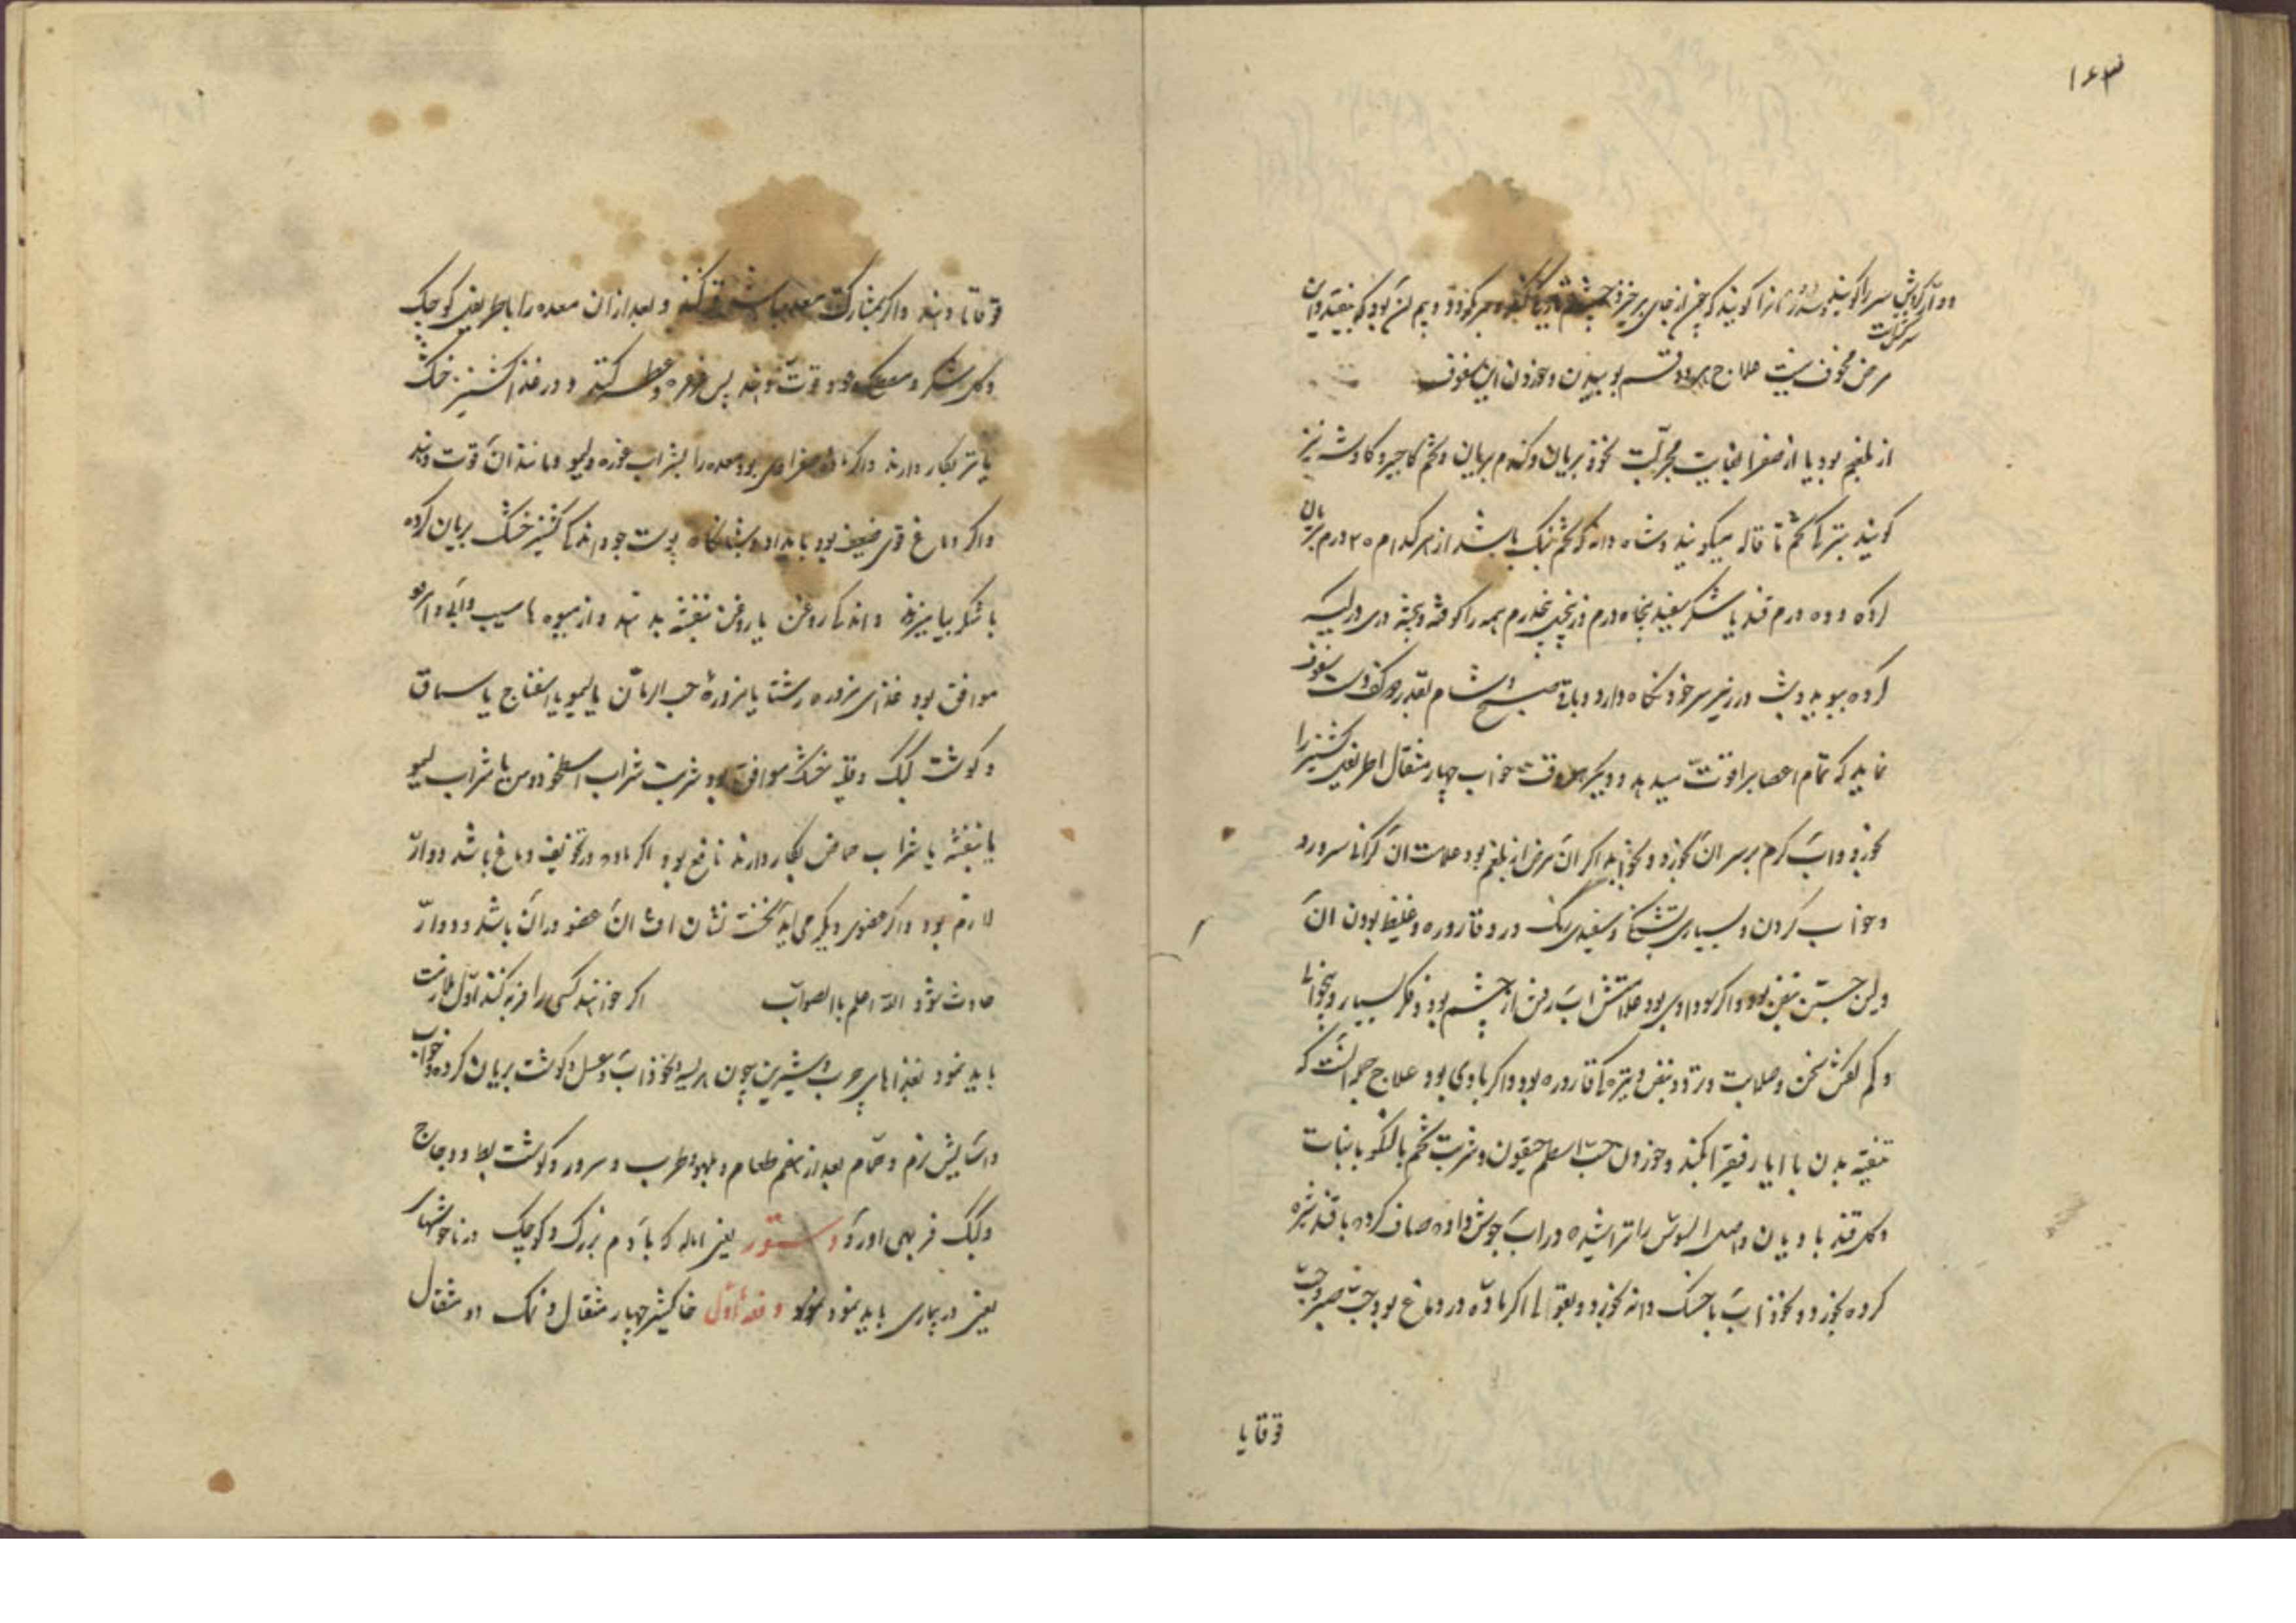 ۱۶۳
دوار کردش سر را کویند و سدر آنرا کویند که چون از جای برخیزد چشم تاریکی کند و سر کردد و بیم آن بود که بیفتد و این
سر کشت
مرض مخوف نیست علاج هر دو قسم بوییدن و خوردن این سفوف
از بلغم بود یا از صفرا بغایت مجربست نخود بریان و کندم بریان و تخم کاجیره کاوشه نیز
کویند بترکی تخم قاله میکویند و شاه دانه که تخم بنک باشد از هر کدام ۲۰ درم بریان
کرده و ده درم قند یا شکر سفید پنجاه درم همه را کوفته و بیخته در کیسه
کرده ببوید و شب در زیر سر خود نکاه دارد و باقی صبح و شام بقدر کف دست سفوف
نماید که تمام اعصا را قوت میدهد و دیکر هر وقت خواب چهار مثقال اطریفل کشنیز را
بخورد و آب کرم بر سر آن بخورد و بخوابد اکر آن مرض از بلغم بود علامت آن کرانی سر و درد
و خواب کردن و بسیاری تشنکی و سفیدی رنک و قاروره و غلیظ بودن آن
و لین جستن نبض بود و اکر سوداوی بود علامتش آب رفتن از چشم بود و فکر بسیار و بیخوابی
و کم کفتن سخن و صلابت و تیره کی قاروره بود و اکر بادی بود علاج جمله آنست که
تنقیه بدن با ایارفیقرا کند و خوردن حب اسطمخیقون و شربت تخم بالنکو با نبات
و کلقند بادیان و اصل السوس را تراشیده در آب جوش داده صاف کرده با قند شیره
کرده بخورد و نخود آب با خسک دانه بخورد و بقولی اکر ماده در دماغ بود حب صبر و حب
قوقایا
قوقایا دهند و اکر بمشارکت معده باشد قی کند و بعد از آن معده را باطریفل کوچک
و کلشکر و مصطکی و عود قوت دهند پس غرغره و عطسه کنند و در غذا کشنیز خشک
یا تر بکار دارند و اکر ماده صفراوی بود معده را بشراب غوره و لیمو و مانند آن قوت دهند
و اکر دماغ قوی ضعیف بود بامداد و شبانکاه پوست جو و اندکی کشنیز خشک بریان کرده
با شکر بیامیزند و اندکی روغن یا روغن بنفشه بدهند و از میوه ها سیب و آبی و امرود
موافق بود غذای مزوره رشتا یا مزوره حب الرمان یا لیمو یا اسفناج یا سماق
و کوشت کبک و قلیه خشک موافق بود شربت شراب اسطوخودوس یا شراب لیمو
یا بنفشه یا شراب حماض بکار دارند نافع بود اکر ماده در تجویف دماغ باشد دوار
لازم بود و اکر عضوی دیکر می آید نخست نشان آفت آن عضو در آن باشد و دوار
حادث شود الله اعلم باالصواب اکر خواهند کسی را فربه کنند اول ملازمت
باید نمود بغذاهای چرب و شیرین چون هریسه و نخوداب و عسل و کوشت بریان کرده و خواب
و آسایش نرم و حمام بعد از هضم طعام و لهو و طرب و سرور و کوشت بط و دجاج
و کبک فربهی آورد دستور یعنی اماله که با آدم بزرک و کوچک در ناخوشیها
یعنی در بیماری باید نمود دفعه اول خاکشیر چهار مثقال و نمک دو مثقال